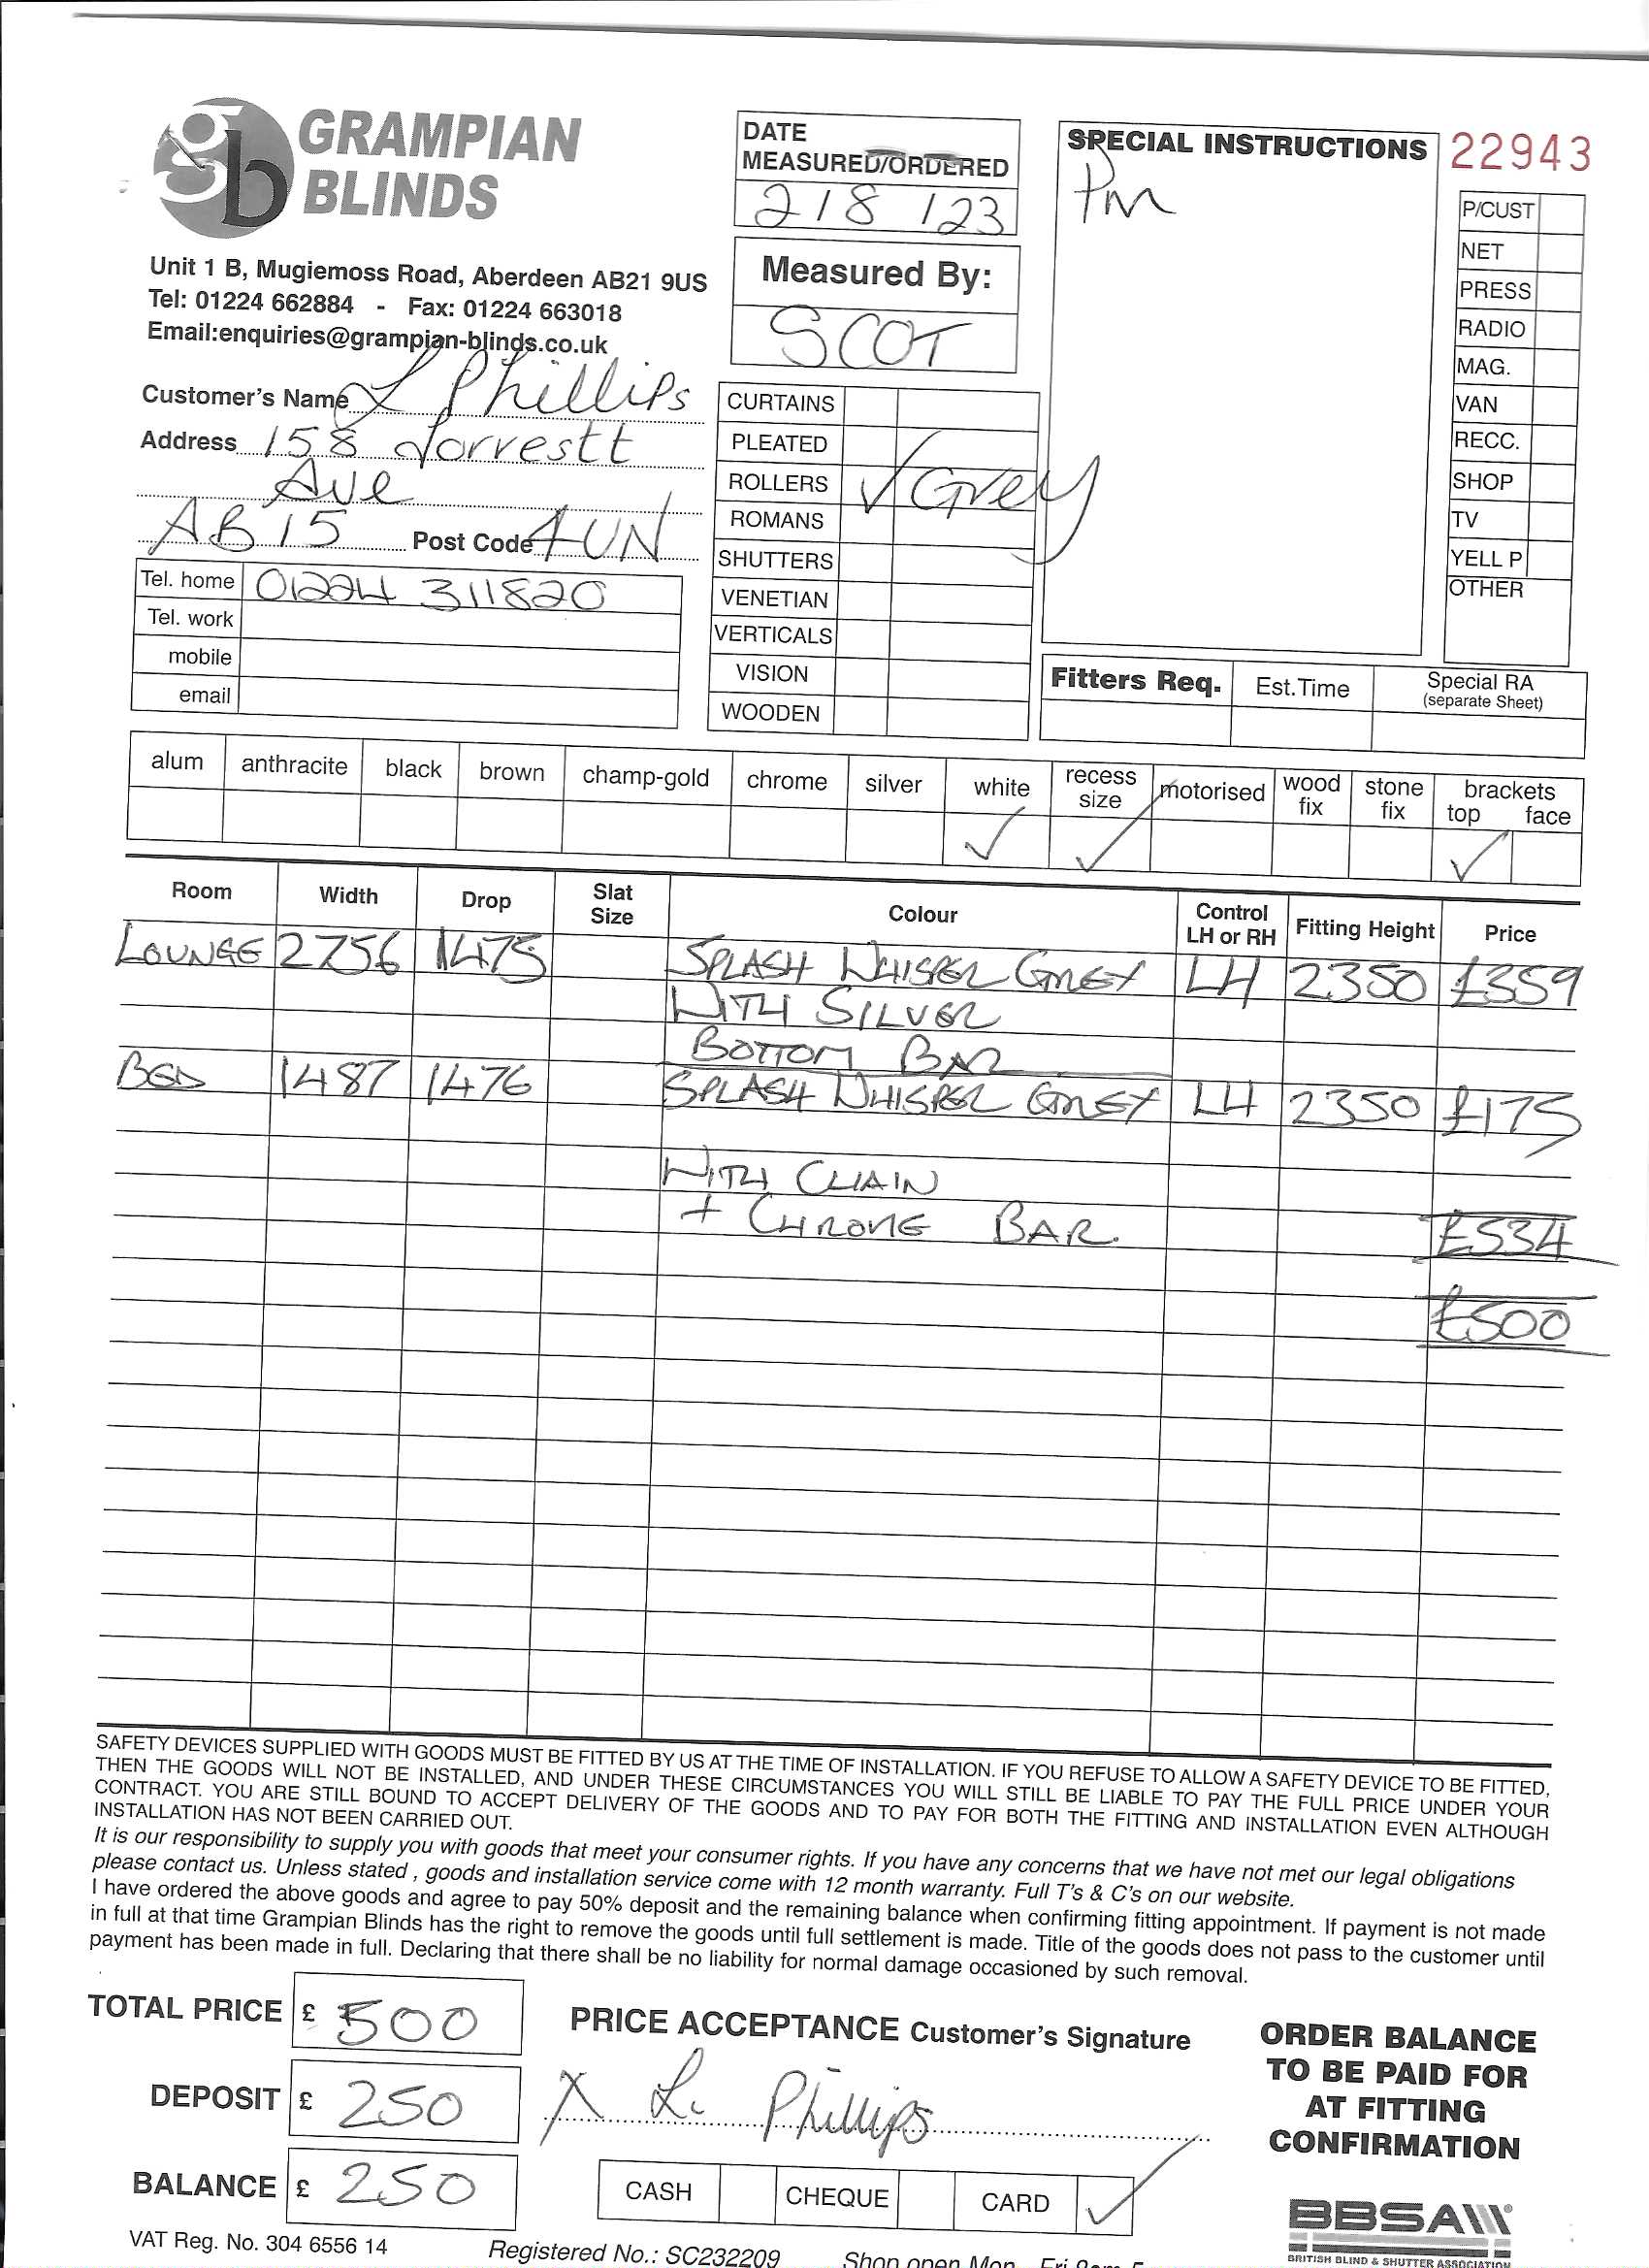 GRAMPIAN
BLINDS
Unit 1 B, Mugiemoss Road, Aberdeen AB21 9US
Tel: 01224 662884 - Fax: 01224 663018
Email:enquiries@grampian-blinds.co.uk
DATE
MEASURED/ORDERED
2/8/23
Measured By:
SCOT
SPECIAL INSTRUCTIONS
Pm
22943
P/CUST
NET
PRESS
RADIO
MAG.
VAN
RECC.
SHOP
TV
YELL P
OTHER
Customer's Name L Phillips
Address 158 Forrestt
Ave
AB15 Post Code 4UN
Tel. home 01224 311820
Tel. work
mobile
email
CURTAINS
PLEATED
ROLLERS ✓ Grey
ROMANS
SHUTTERS
VENETIAN
VERTICALS
VISION
WOODEN
Fitters Req. Est.Time Special RA
(separate Sheet)
alum anthracite black brown champ-gold chrome silver white recess size motorised wood fix stone fix brackets top face
✓ ✓ ✓
Room Width Drop Slat Size Colour Control LH or RH Fitting Height Price
LOUNGE 2756 1475 SPLASH WHISPER GREY LH 2350 £359
WITH SILVER
BOTTOM BAR
BED 1487 1476 SPLASH WHISPER GREY LH 2350 £175
WITH CHAIN
+ CHROME BAR.
£534
£500
SAFETY DEVICES SUPPLIED WITH GOODS MUST BE FITTED BY US AT THE TIME OF INSTALLATION. IF YOU REFUSE TO ALLOW A SAFETY DEVICE TO BE FITTED,
THEN THE GOODS WILL NOT BE INSTALLED, AND UNDER THESE CIRCUMSTANCES YOU WILL STILL BE LIABLE TO PAY THE FULL PRICE UNDER YOUR
CONTRACT. YOU ARE STILL BOUND TO ACCEPT DELIVERY OF THE GOODS AND TO PAY FOR BOTH THE FITTING AND INSTALLATION EVEN ALTHOUGH
INSTALLATION HAS NOT BEEN CARRIED OUT.
It is our responsibility to supply you with goods that meet your consumer rights. If you have any concerns that we have not met our legal obligations
please contact us. Unless stated , goods and installation service come with 12 month warranty. Full T's & C's on our website.
I have ordered the above goods and agree to pay 50% deposit and the remaining balance when confirming fitting appointment. If payment is not made
in full at that time Grampian Blinds has the right to remove the goods until full settlement is made. Title of the goods does not pass to the customer until
payment has been made in full. Declaring that there shall be no liability for normal damage occasioned by such removal.
TOTAL PRICE £ 500
DEPOSIT £ 250
BALANCE £ 250
PRICE ACCEPTANCE Customer's Signature
X L. Phillips
CASH CHEQUE CARD ✓
ORDER BALANCE
TO BE PAID FOR
AT FITTING
CONFIRMATION
BBSA
BRITISH BLIND & SHUTTER ASSOCIATION
VAT Reg. No. 304 6556 14 Registered No.: SC232209 Shop open Mon - Fri 9am-5